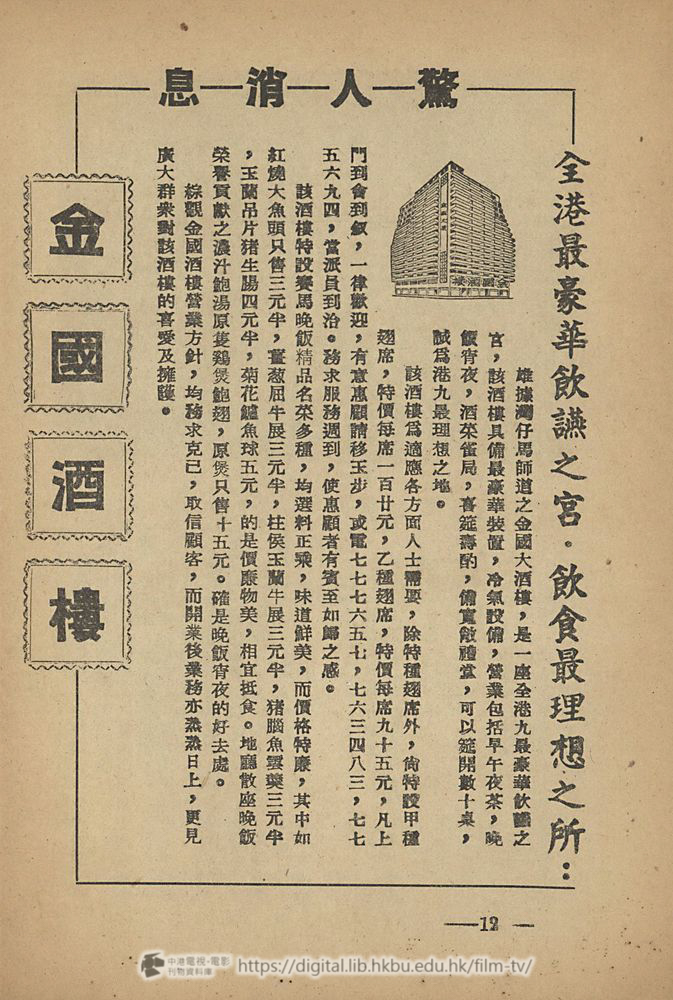 驚人消息
全港最豪華飲讌之宮。飲食最理想之所：
雄據灣仔馬師道之金國大酒樓，是一座全港九最豪華飲讌之
宮，該酒樓具備最豪華裝置，冷氣設備，營業包括早午夜茶，晚
飯宵夜，酒菜雀局，喜筵壽酌，備寬敞禮堂，可以筵開數十桌，
誠爲港九最理想之地。
該酒樓爲適應各方面人士需要，除特種翅席外，尙特設甲種
翅席，特價每席一百廿元，乙種翅席，特價每席九十五元，凡上
門到會到叙，一律歡迎，有意惠顧請移玉步，或電七七七六五七，七六三四八三，七七
五六九四，當派員到洽。務求服務週到，使惠顧者有賓至如歸之感。
該酒樓特設賽馬晚飯精品名菜多種，均選料正乘，味道鮮美，而價格特廉，其中如
紅燒大魚頭只售三元半，薑葱屈牛展三元半，柱侯玉蘭牛展三元半，猪腦魚雲羹三元半
，玉蘭吊片猪生腸四元半，菊花鱸魚球五元，的是價廉物美，相宜抵食。地廳散座晚飯
榮譽貢獻之濃汁鮑湯原隻鷄煲鮑翅，原煲只售十五元。確是晚飯宵夜的好去處。
綜觀金國酒樓營業方針，均務求克己，取信顧客，而開業後業務亦蒸蒸日上，更見
廣大群衆對該酒樓的喜愛及擁護。
金
國
酒
樓
金國酒樓
—12—
中港電視·電影
刊物資料庫
https://digital.lib.hkbu.edu.hk/film-tv/